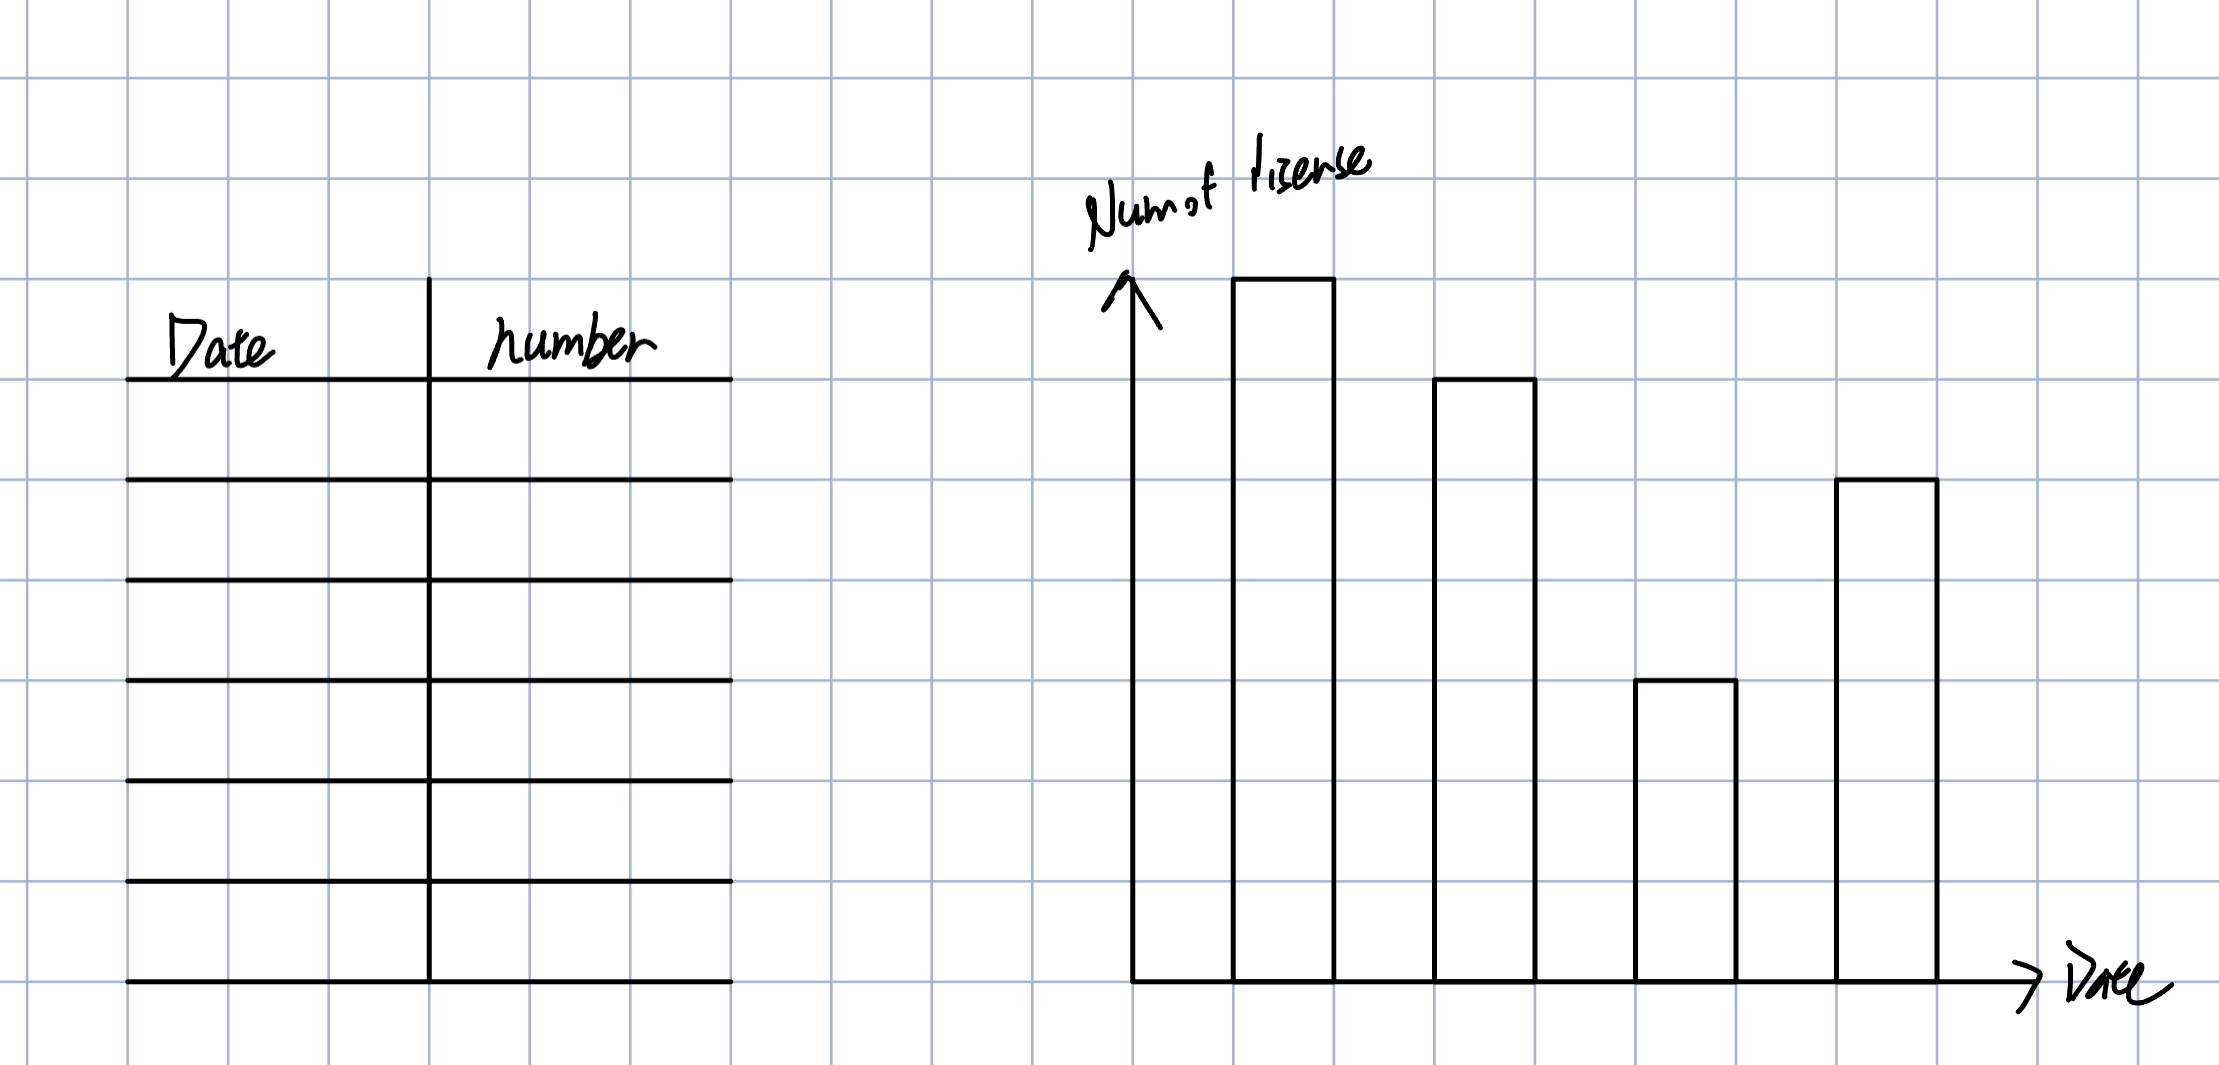 Date
number
Num of license
Date